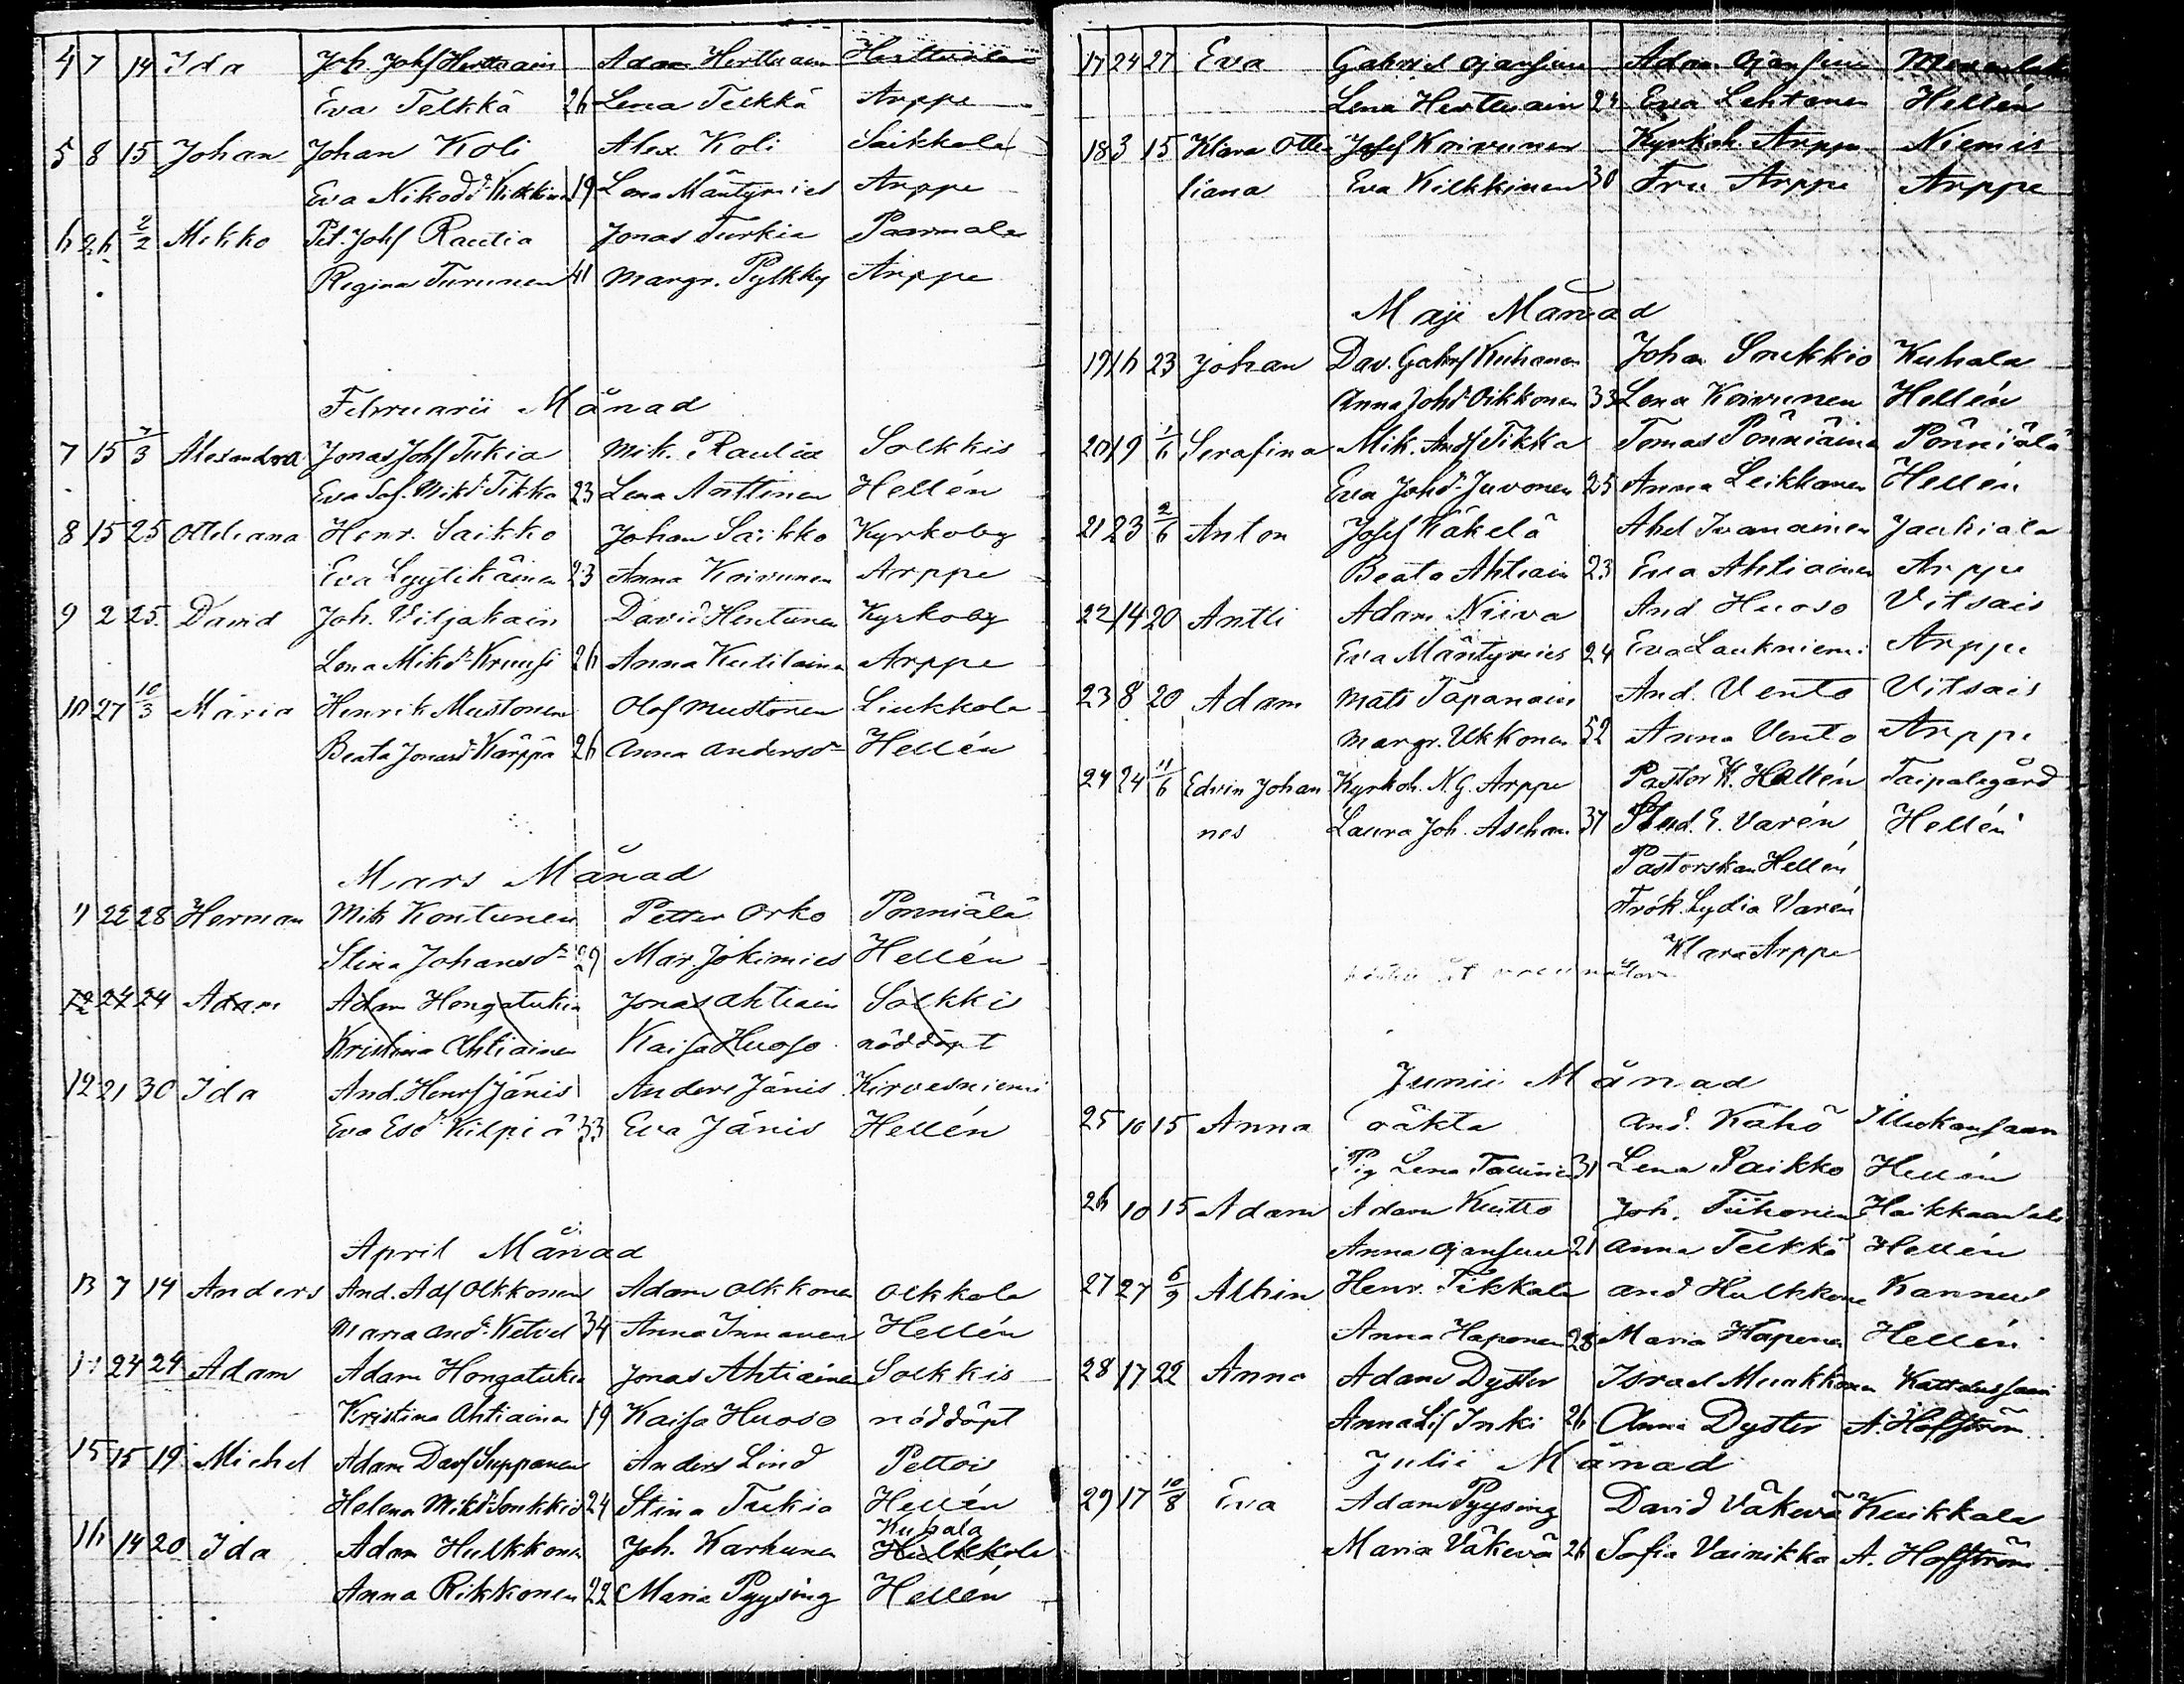 4 7 14 Ida Joh. Johs Herttuain Adam Herttuain Herttuala
Eva Telkkä 26 Lena Telkkä Arppe
5 8 15 Johan Johan Koli Alex. Koli Saikkola
Eva Nikod.dr Kilkkinen 19 Lena Mäntymies Arppe
6 26 2/2 Mikko Pet. Johs Rautia Jonas Turkia Paarmala
Regina Turunen 41 Margr. Pylkky Arppe
Februarii Månad
7 15 7/3 Alexandra Jonas Johs Tukia Mik. Rautia Solkkis
Eva Sof. Mikdr Tikka 23 Lena Anttinen Hellén
8 15 25 Ottiliana Henr. Saikko Johan Saikko Kyrkoby
Eva Lyytikäinen 23 Anna Koivunen Arppe
9 2 25 David Joh. Viljakain David Hentunen Kyrkoby
Lena Mikdr Kruusi 26 Anna Kutilaina Arppe
10 27 10/3 Maria Henrik Mustonen Olof Mustonen Liukkola
Beata Jonasdr Kärppä 26 Anna Andersdr Hellén
Mars Månad
11 22 28 Herman Mik Kontunen Petter Orko Pönniälä
Stina Johansdr 29 Mar. Jokimies Hellén
12 24 24 Adam Adam Hongatukia Jonas Ahtiain Solkki
Kristina Ahtiainen Kaisa Huoso nöddöpt
12 21 30 Ida And. Henrs Jänis Anders Jänis Kirvesniemi
Eva Esdr Kilpiä 33 Eva Jänis Hellén
April Månad
13 7 14 Anders And. Ads Olkkonen Adam Olkkonen Olkkola
Maria Anddr Ketvel 34 Anna Innanen Hellén
14 24 24 Adam Adam Hongatukia Jonas Ahtiainen Solkkis
Kristina Ahtiainen 19 Kaisa Huoso nöddöpt
15 15 19 Michel Adam Davs Suppanen Anders Lind Peltois
Helena Mikdr Soukkio 24 Stina Tukia Hellén
Kuhala
16 14 20 Ida Adam Hulkkonen Joh. Karhunen Hulkkola
Anna Rikkonen 22 Maria Pyysing Hellén
17 24 27 Eva Gabriel Ojansuu Adam Ojansuu
Lena Herttuain 24 Eva Lehtonen Hellén
18 3 15 Klara Otti- Josef Koivunen Kyrkoh. Arppe Niemis
liana Eva Kilkkinen 30 Fru Arppe Arppe
Maji Månad
19 16 23 Johan Dav. Gabrs Kuhanen Johan Soukkio Kuhala
Anna Johdr Oikkonen 33 Lena Koivunen Hellén
20 19 1/6 Serafina Mik. Ands Tikka Tomas Pönniäinen Pönniälä
Eva Johdr Juvonen 25 Anna Leikkanen Hellén
21 23 2/6 Anton Josef Käkelä Abel Ivanainen Jaakiala
Beata Ahtiain 23 Eva Ahtiainen Arppe
22 14 20 Antti Adam Niiva And Huoso Vitsais
Eva Mäntymies 24 Eva Laukniemi Arppe
23 8 20 Adam Mats Tapanain And. Vento Vitsais
Margr. Ukkonen 32 Anna Vento Arppe
24 24 11/6 Edvin Johan Kyrkoh. N.G. Arppe Pastor K. Hellén Taipalegård
nes Laura Joh. Aschan 37 Stud. E. Varén Hellén
Pastorskan Hellén
Frök. Lydia Varén
Klara Arppe
Junii Månad
25 10 15 Anna oäkta And. Kähö
Pig Lena 31 Lena Paikko Hellén
26 10 15 Adam Adam Kutto Joh. Tiihonen
Anna Ojansuu 21 Anna Telkkä Hellén
27 27 6/9 Albin Henr. Tikkala And Hulkkone Kannus
Anna Haponen 28 Maria Haponen Hellén
28 17 22 Anna Adam Dyster Israel Muukkonen Kattelussaari
Anna Lis Inki 26 Anna Dyster A. Hofström
Julii Månad
29 17 10/8 Eva Adam Pyysing David Väkevä Kuikkala
Maria Väkevä 26 Sofia Vainikka A. Hofström